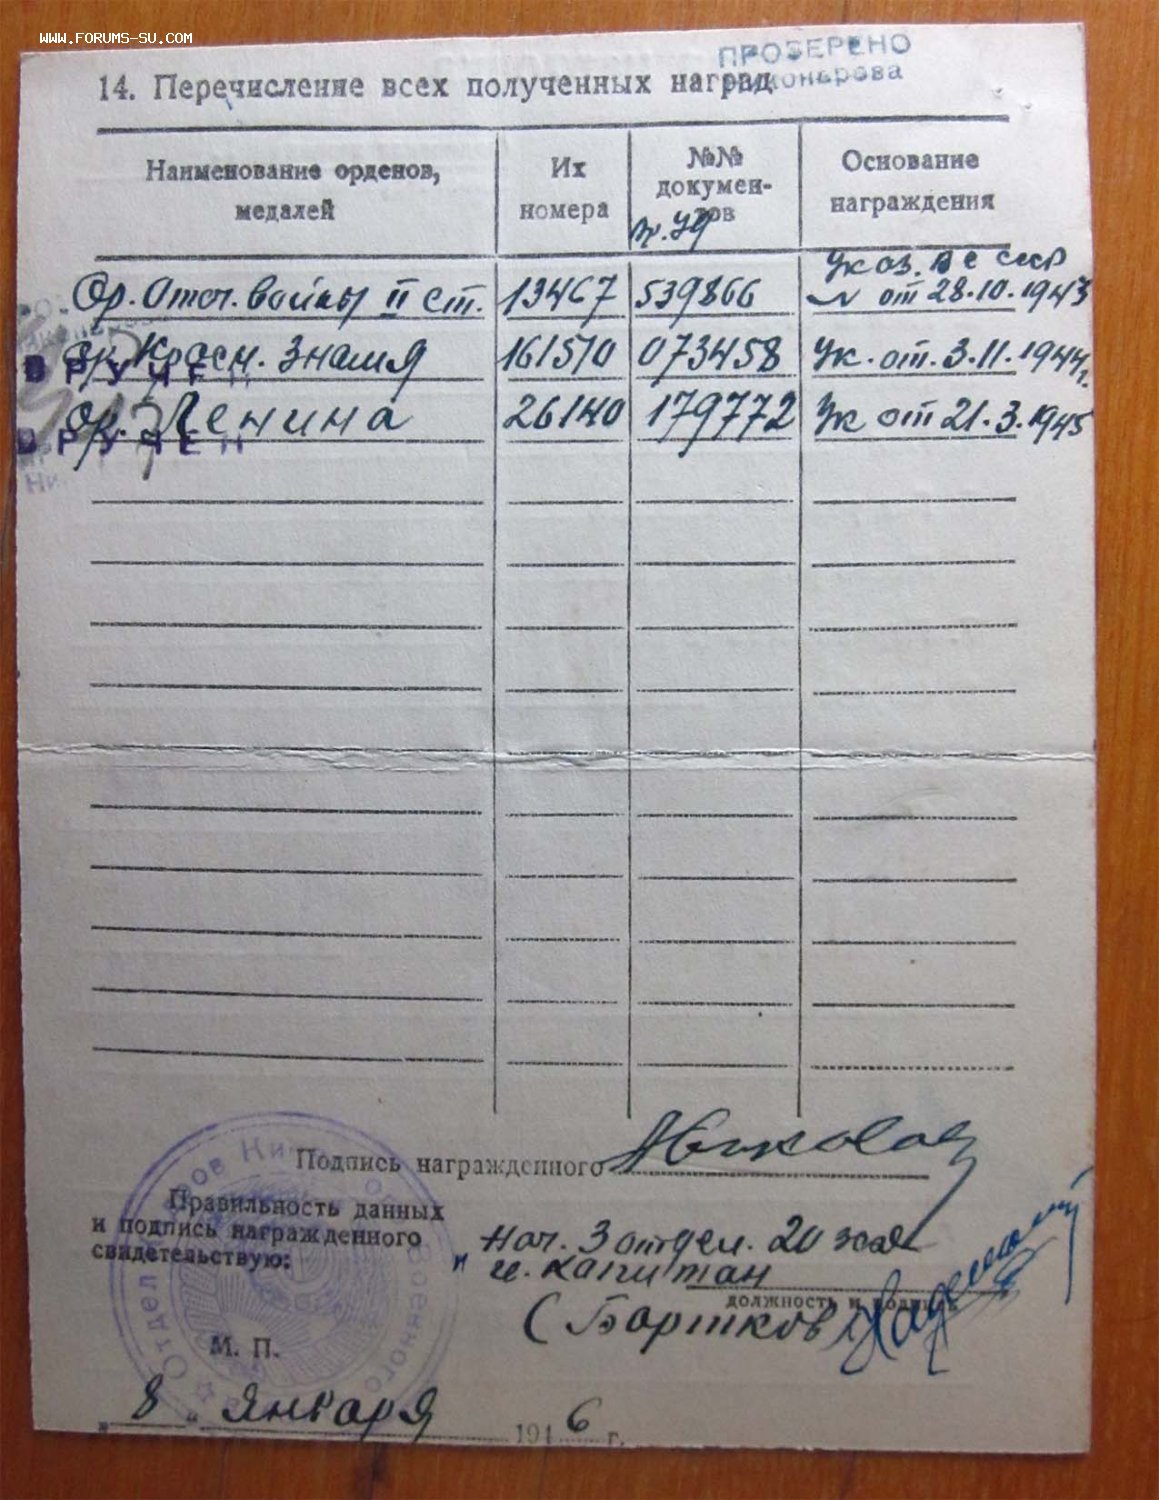 WWW.FORUMS-SU.COM
ПРОВЕРЕНО
14. Перечисление всех полученных наград
Наименование орденов, медалей
Их номера
№№ документов
Основание награждения
Вр. уд
Ор. Отеч. войны II ст. 13467 539866 Указ. ВС СССР от 28.10.1943
Ор. Красн. Знамя 161510 073458 Ук. от. 3.11.1944 г.
ВРУЧЕН
Ор. Ленина 26140 179772 Ук от 21.3.1945
ВРУЧЕН
Подпись награжденного
Правильность данных
и подпись награжденного
свидетельствую:
Нач. 3 отдел.
капитан
должность и подпись
(Бартков)
М. П.
„8“ Января 1946 г.